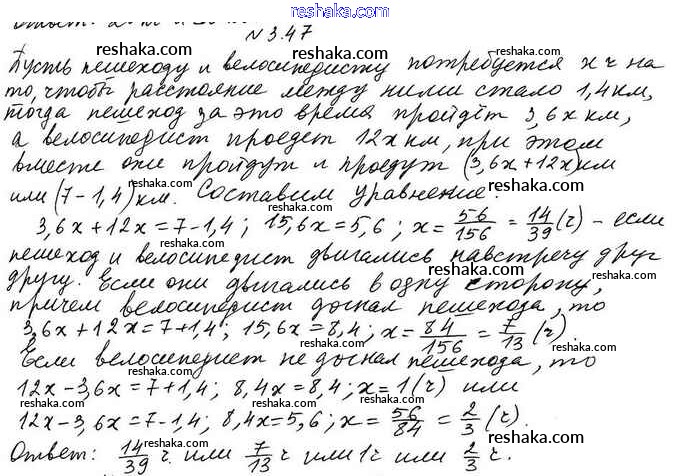 reshaka.ru
№3.47
Пусть пешеходу и велосипедисту потребуется x ч на
то, чтобы расстояние между ними стало 1,4 км,
тогда пешеход за это время пройдёт 3,6x км,
а велосипедист проедет 12x км, при этом
вместе они пройдут и проедут (3,6x+12x) км
или (7-1,4) км. Составим уравнение:
3,6x+12x=7-1,4; 15,6x=5,6; x=56/156=14/39 (ч) - если
пешеход и велосипедист двигались навстречу друг
другу. Если они двигались в одну сторону,
причем велосипедист догнал пешехода, то
3,6x+12x=7+1,4; 15,6x=8,4; x=84/156=7/13 (ч).
Если велосипедист не догнал пешехода, то
12x-3,6x=7+1,4; 8,4x=8,4; x=1(ч) или
12x-3,6x=7-1,4; 8,4x=5,6; x=56/84=2/3 (ч).
Ответ: 14/39 ч или 7/13 ч или 1ч или 2/3 ч.